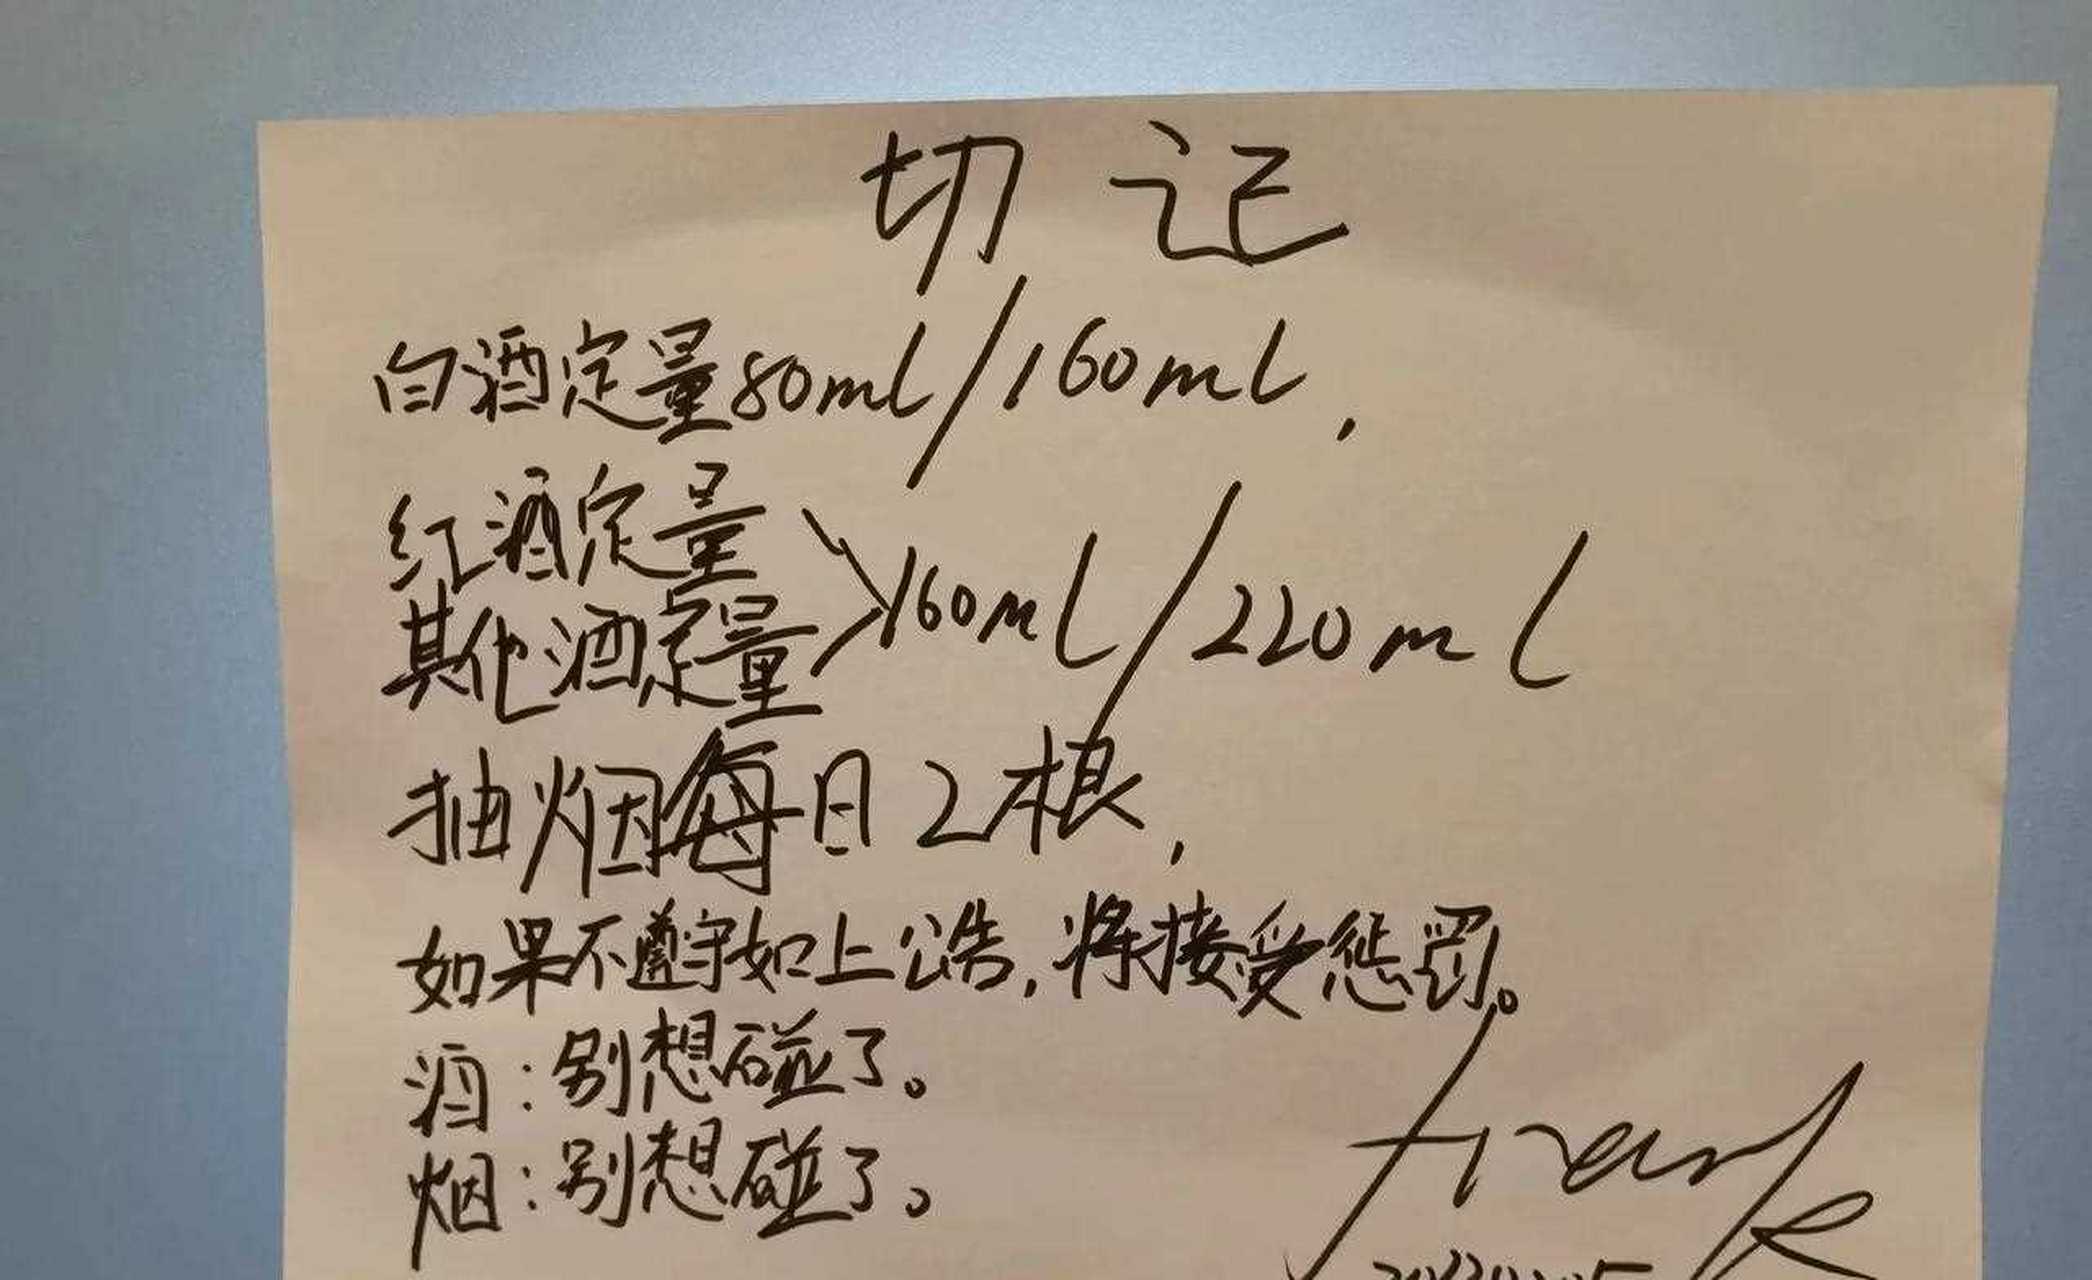 切记
白酒定量80ml/160ml,
红酒定量
其他酒定量>160ml/220ml
抽烟每日2根,
如果不遵守如上公告,将接受惩罚。
酒:别想碰了。
烟:别想碰了。
frank